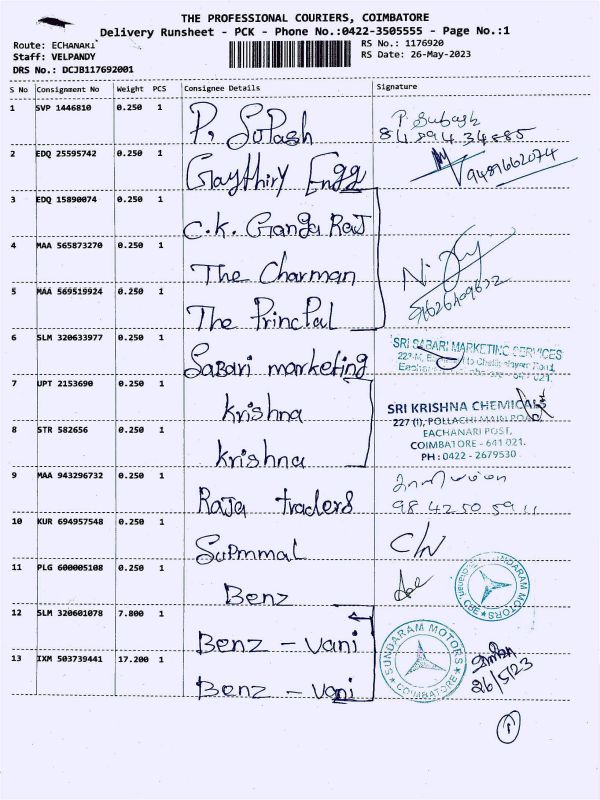 THE PROFESSIONAL COURIERS, COIMBATORE
Delivery Runsheet - PCK - Phone No.:0422-3505555 - Page No.:1
Route: ECHANARI
Staff: VELPANDY
DRS No.: DCJB117692001
RS No.: 1176920
RS Date: 26-May-2023
S No Consignment No Weight PCS Consignee Details Signature
1 SVP 1446810 0.250 1 P. Subash
84894 34885
2 EDQ 25595742 0.250 1 Gaythiry Engg 9489662074
3 EDQ 15890074 0.250 1 C.K. Ganga Raj
4 MAA 565873270 0.250 1 The Charman
5 MAA 569519924 0.250 1 The PrincPal
6 SLM 320633977 0.250 1 Sabari marketing SRI SABARI MARKETING SERVICES
7 UPT 2153690 0.250 1 Krishna SRI KRISHNA CHEMICALS
227 (I), POLLACHI MAIN ROAD,
EACHANARI POST,
8 STR 582656 0.250 1 Krishna COIMBATORE - 641 021.
PH : 0422 - 2679530
9 MAA 943296732 0.250 1 Raja traders 98 42 50 59 11
10 KUR 694957548 0.250 1 C/N
11 PLG 600005108 0.250 1 Benz SUNDARAM MOTORS CBE
12 SLM 320601078 7.800 1 Benz - Vani SUNDARAM MOTORS COIMBATORE
13 IXM 503739441 17.200 1 Benz - Vani 26/5/23
1